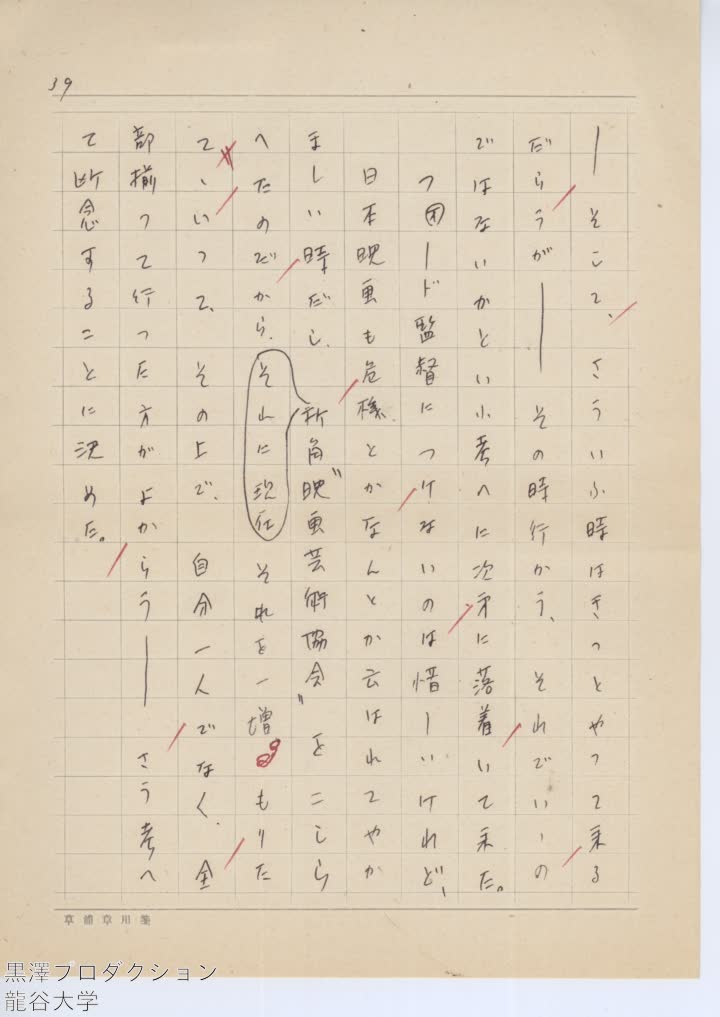 39
―そして、さういふ時はきつとやつて来る
だらうが――その時行かう、それでいゝの
ではないかといふ考へに次才に落着いて来た。
フオード監督につけないのは惜しいけれど、
日本映画も危機とかなんとか云はれてやか
ましい時だし、折角〝映画芸術協会〟をこしら
へたのだから、それに現在それを一増もりた
てゝいつて、その上で、自分一人でなく、全
部揃つて行つた方がよからう――さう考へ
て断念することに決めた。
黒澤プロダクション
龍谷大学